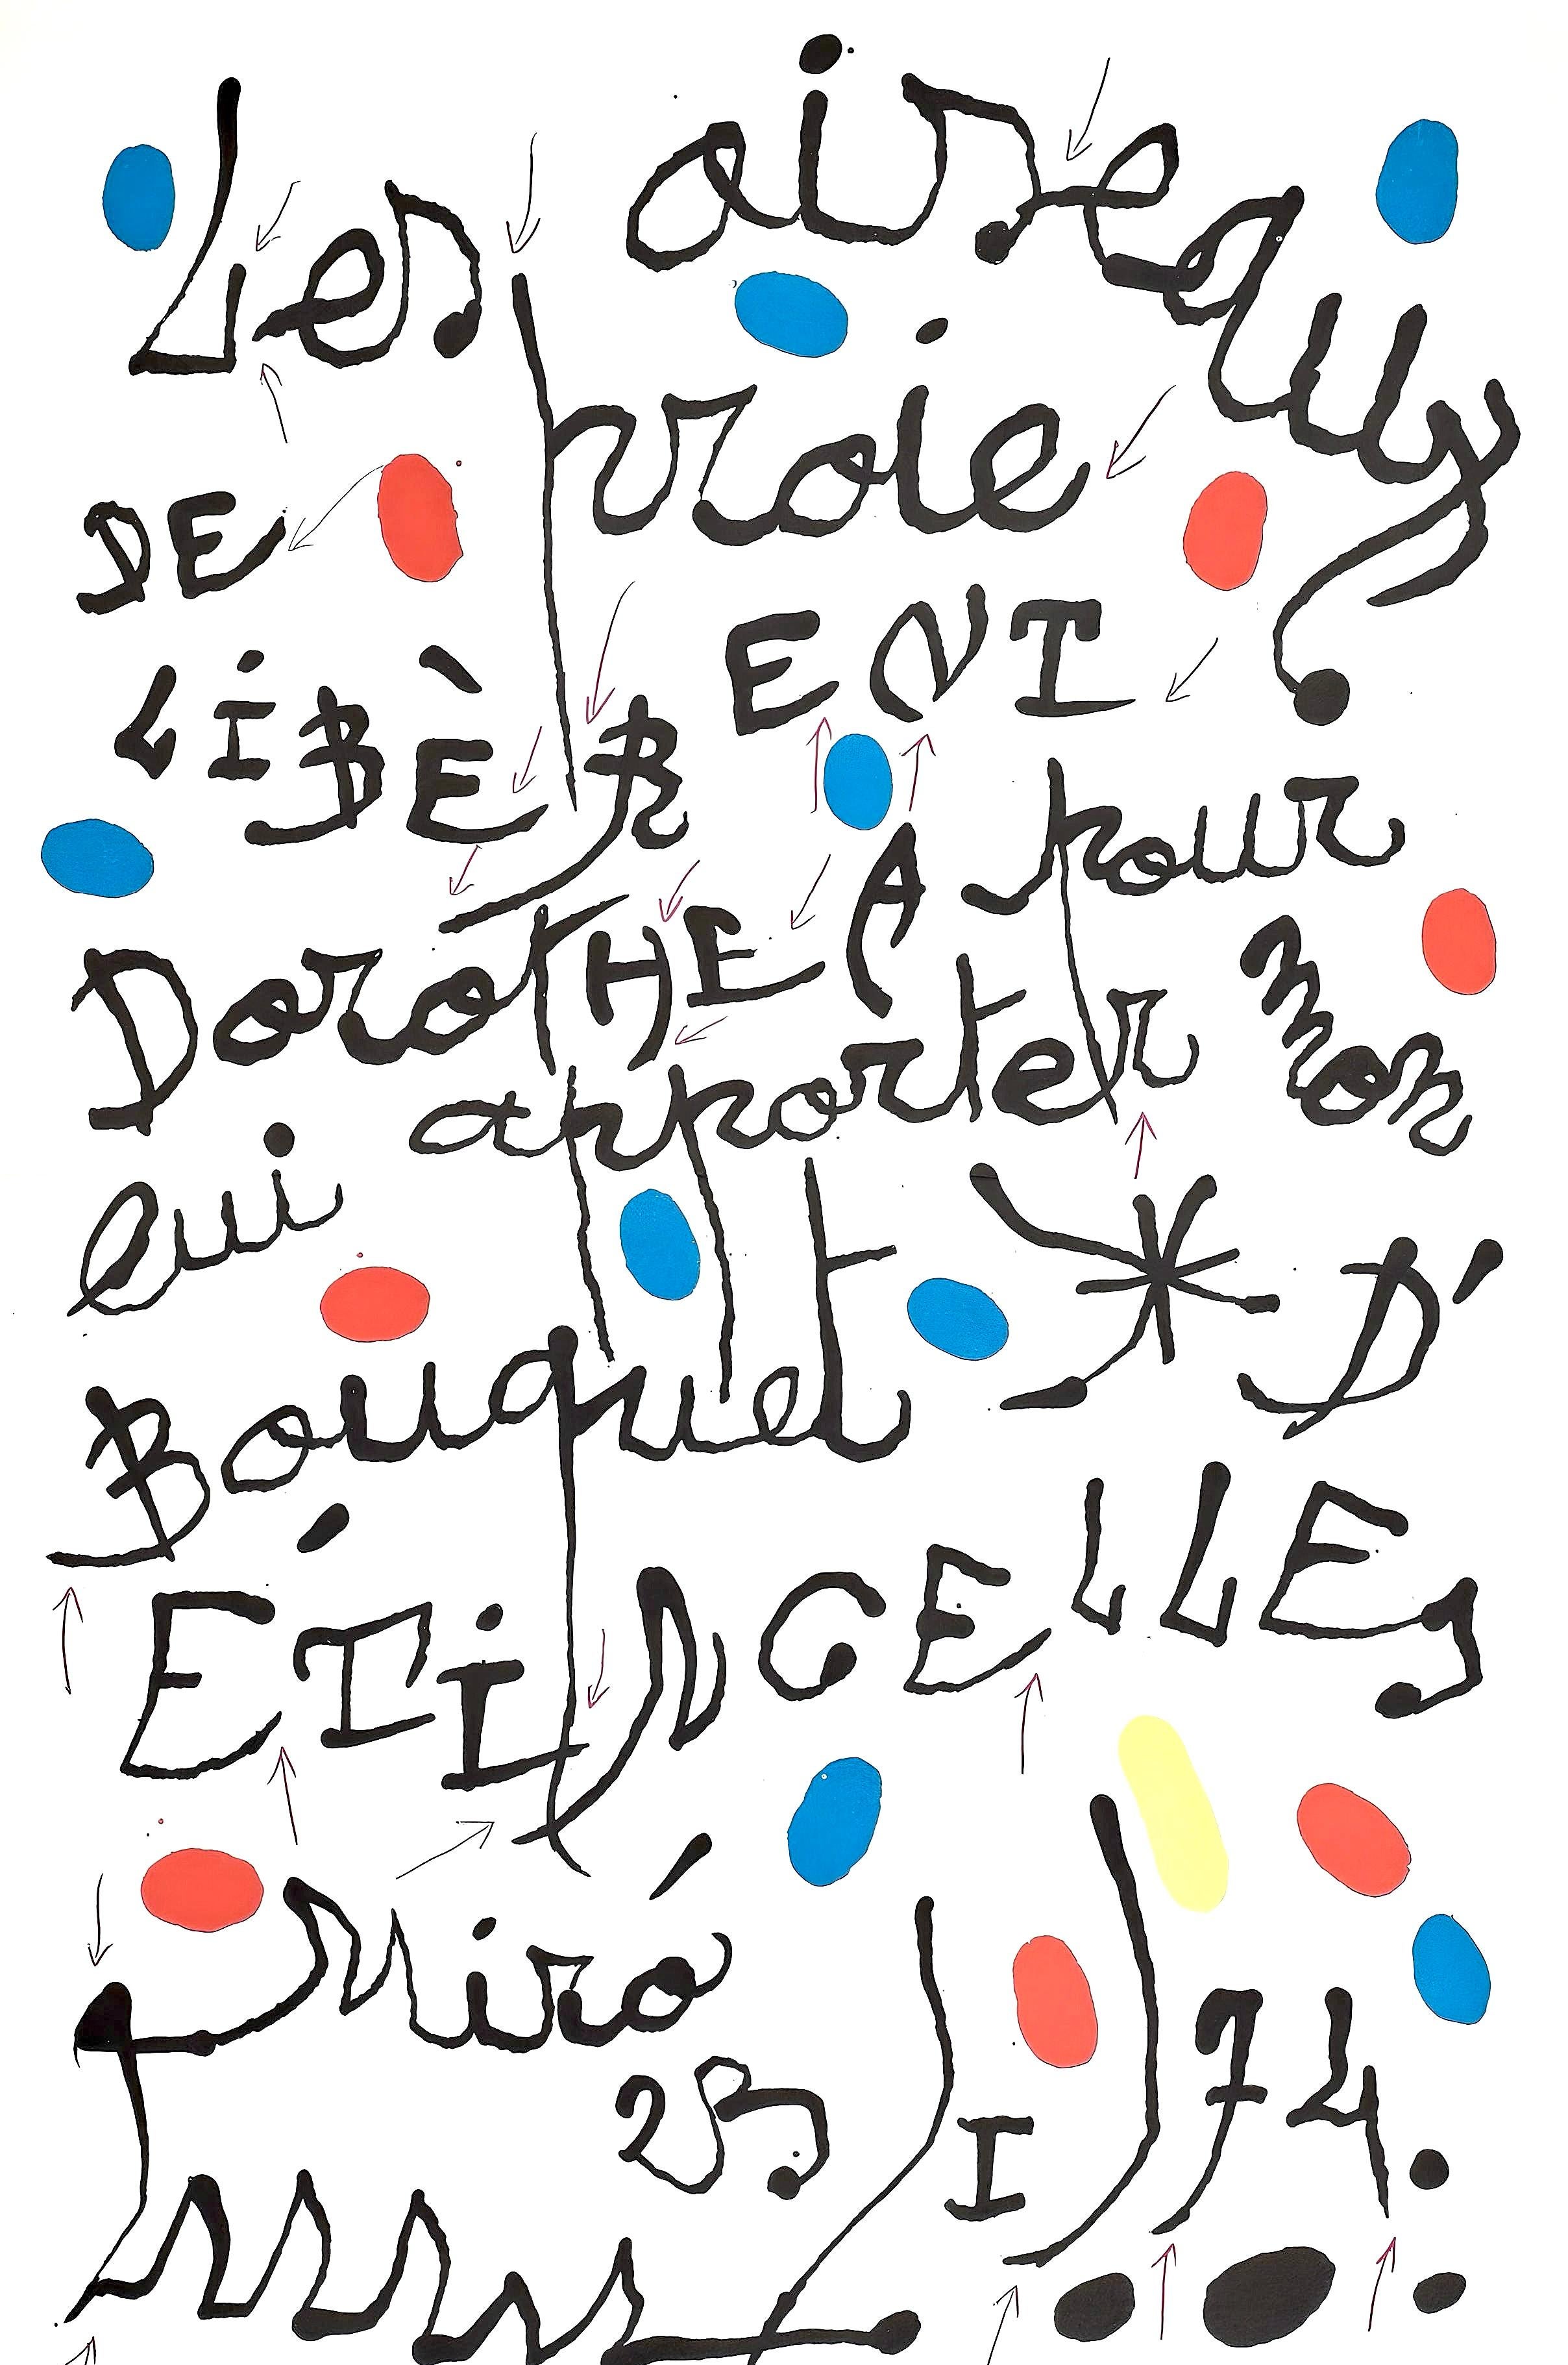 Les oiseaux
DE proie
LIBÈRENT
DoroTHEA pour
lui apporter mon
Bouquet * D'
ÉTiNCELLEs
Miró
25/I/74.